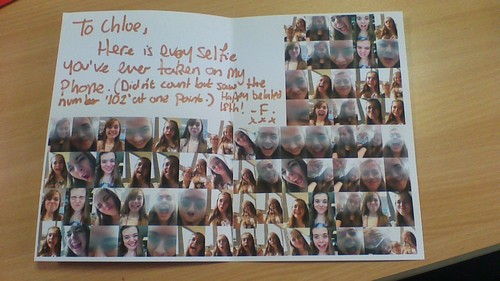 To Chloe,
Here is every selfie
you've ever taken on my
Phone. (Didn't count but saw the
number '102' at one point.) Happy belated
18th! -F.
xxx